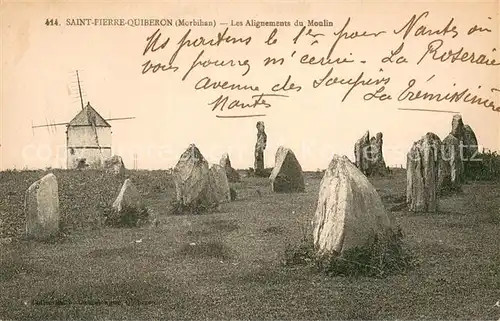 414. SAINT-PIERRE-QUIBERON (Morbihan) — Les Alignements du Moulin
Ns partons le 1er pour Nantes ou
vous pourrez m'écrire. La Roseraie
Avenue des
La Trémissinière
Nantes